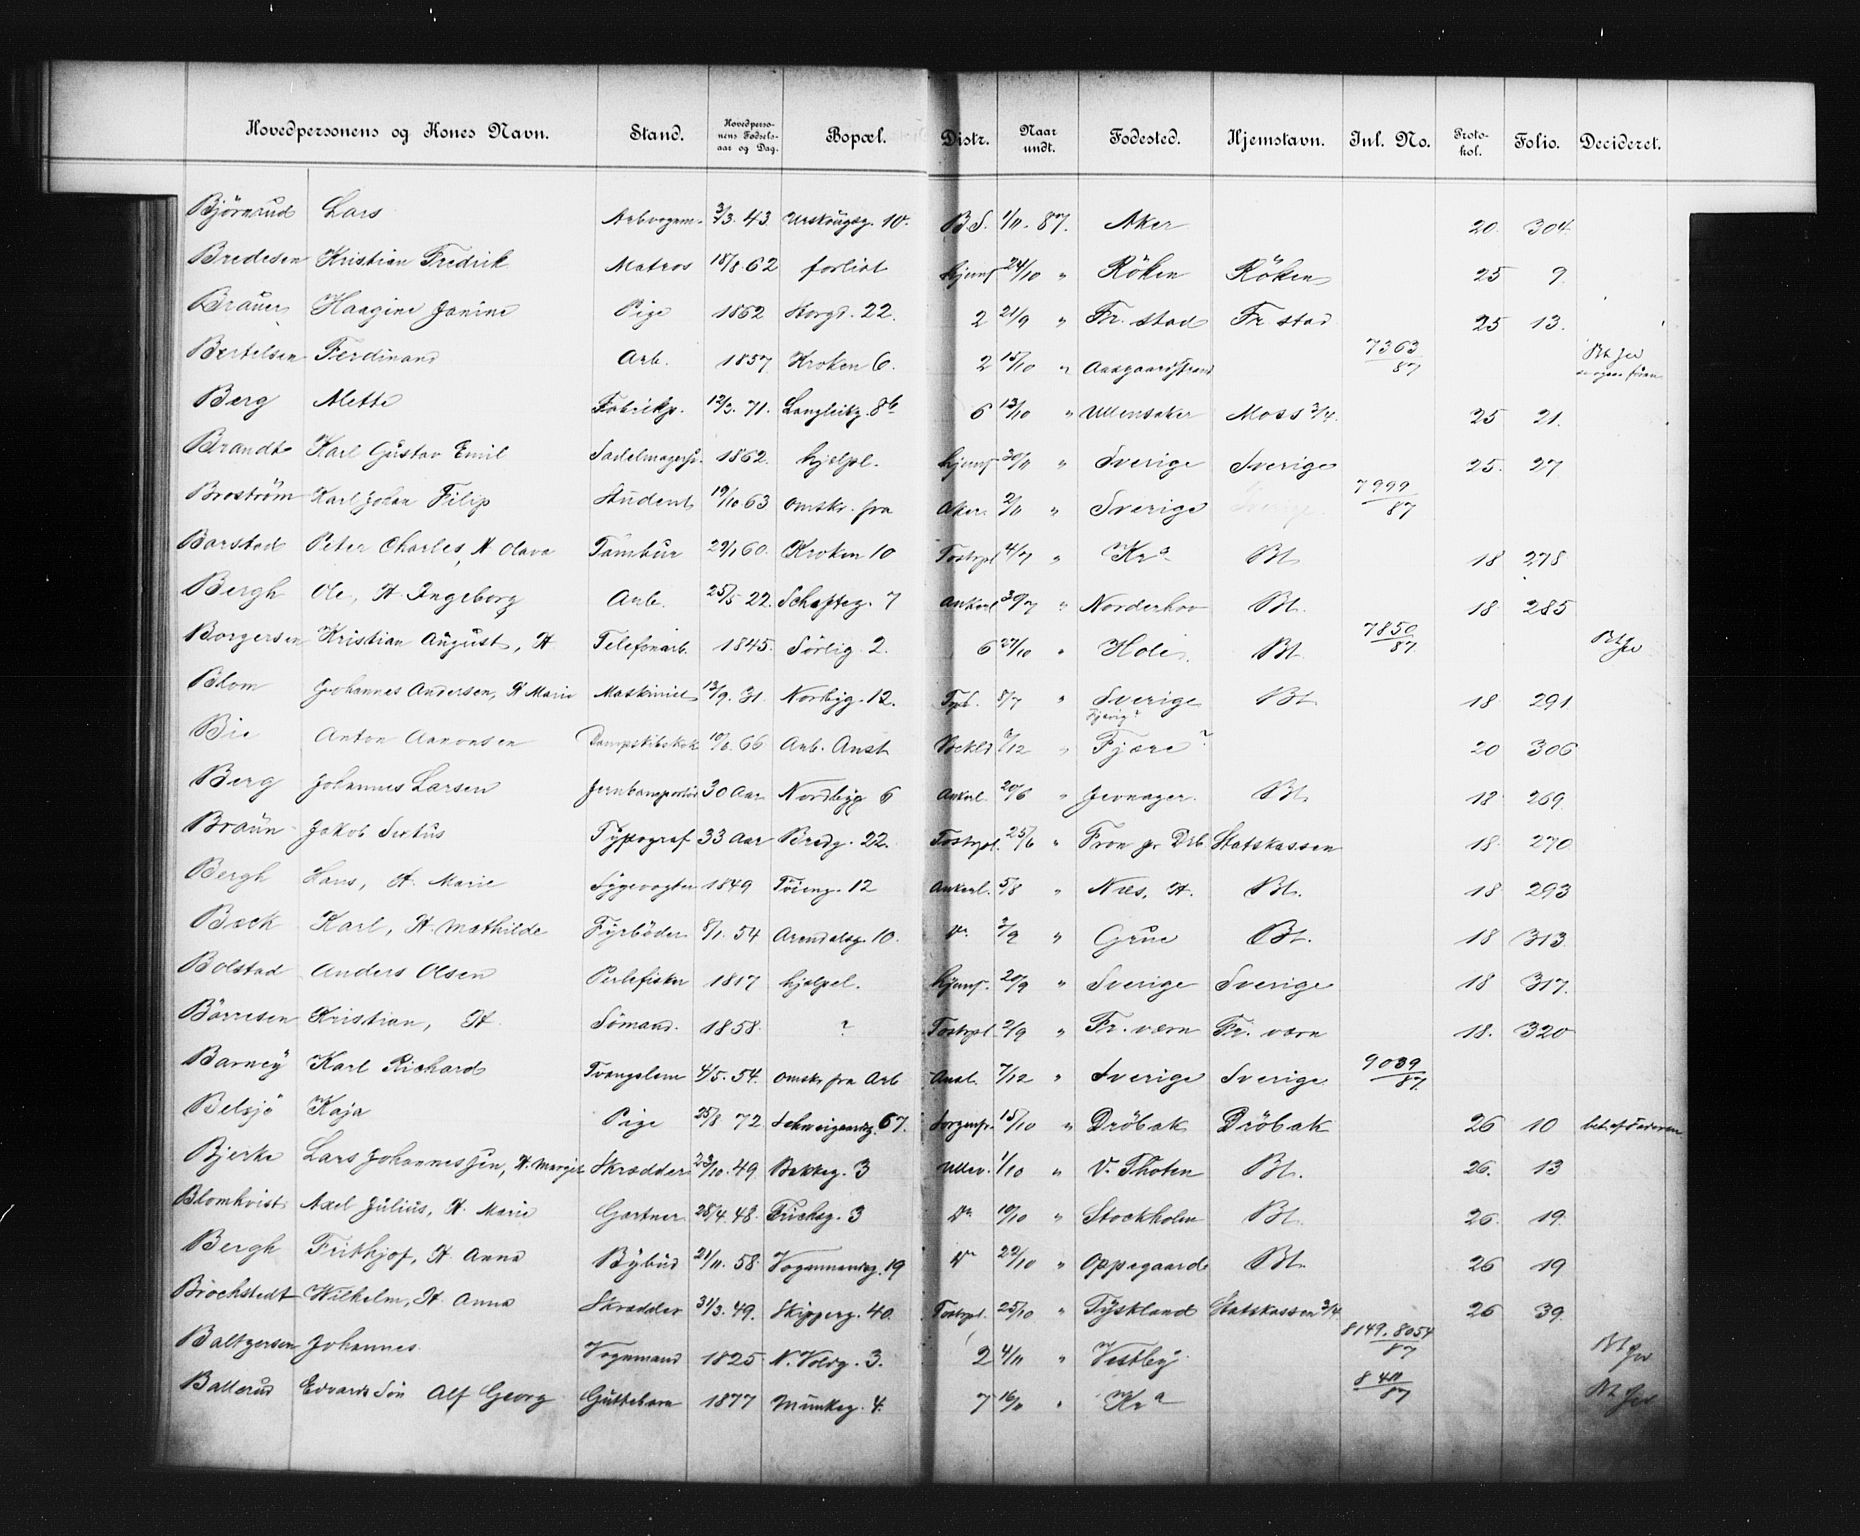 Hovedpersonens og Kones Navn. Stand. Hovedperso-nens Fødsels-aar og Dag. Bopæl. Distr. Naar undt. Fødested. Hjemstavn. Inl. No. Proto-kol. Folio. Decideret.
Björnrud Lars 3/3. 43 Urskougsg. 10. B.S. 1/11. 87. Aker 20. 304.
Bredesen Kristian Fredrik Matros 18/8. 62 forlist hjemf 24/10 " Röken Röken 25 9.
Brauer Haagine Janine Pige 1862 Storgt. 22. 2 21/9 " Fr. stad Fr. stad 25 13.
Bertelsen Ferdinand Arb. 1857 Kroken 6. 2 15/10 " Aasgaardstrand 7363/87
Berg Mette Fabrikp. 12/3. 71. Langleikg. 8b 6 13/10 " Ullensaker Moss 3/4. 25 21.
Brandt Karl Gustav Emil Sadelmagersv. 1862. hjelpl. hjemf 30/11 " Sverige Sverige 25. 27
Broström Karl Johan Filip Student 19/10 63 omskr. fra Aker 2/11 " Sverige 7999/87
Barstad Peter Charles, H. Olava Tambur 29/1 60. Kroken 10 Tostrpl 4/7 " Kra Bt. 18 278
Bergh Ole, H. Ingeborg Arb. 25/5 22. Schafteg. 7 Ankerl 30/7 " Norderhov Bt. 18 285
Borgersen Kristian August, H. Telefonarb. 1845. Sörlig. 2. 6 27/10 " Hole Bt. 7850/87
Blom Johannes Andersen, H Marie Maskinist 13/9. 31. Nordbyg. 12. 8/7 " Sverige Bt. 18 291
Bie Anton Aanonsen Dampskibskok 10/6. 66 Arb. Anst /12 " Fjære ? 20 306
Berg Johannes Larsen 30 Aar Nordbyg 6 Ankerl. 20/6 " Jevnager. Bt. 18 269.
Braün Jakob Sixtus Typograf 33 Aar Bredg. 22. Tostrpl. 25/6 " Fron pr Drb Statskassen 18. 270
Bergh Hans, H. Marie Sygevogter 1849 Töieng. 12 Ankerl. 5/8 " Næs, H. Bt. 18 293
Beck Karl, H. Mathilde Fyrböder 8/1. 54 Arendalsg. 10. Do 2/9 " Grue Bt. 18 313
Bolstad Anders Olsen Perlefisker 1817 hjelpel. hjemf. 20/9 " Sverige Sverige 18 317.
Börresen Kristian, H. Sömand. 1858. ? Tostrpl. 2/9 " Fr. værn Fr. værn 18. 320
Barney Karl Richard Tvangslem 4/5. 54. omskr fra Arb Anst. 7/12 " Sverige Sverige 9039/87
Belsjö Kaja Pige 25/8 72 Schweigaardsg. 67. Sorgenfr. 15/10 " Dröbak Dröbak 26 10 bet. af Faderen
Bjerke Lars Johannessen, H. Margit Skrædder 23/10. 49. Bakkeg. 3 Ullev. 1/10 " V. Thoten Bt. 26. 13
Blomkvist Axel Julius, H. Marie Gartner 28/4. 48. Frichsg. 3 Do 10/10 " Stockholm Bt. 26. 19.
Bergh Frithjof, H. Anna Bybud 21/11. 58. Vognmandsg. 19 Do 22/10 " Oppegaard Bt. 26 19
Brochstedt Wilhelm, H. Anna Skrædder 31/3. 49. Skipperg. 40. Tostrpl. 25/10 " Tyskland Statskassen 3/4 26 39.
Baltzersen Johannes Vognmand 1825 N. Voldg. 3. 2 4/11 " Vestby 8149. 8054/87
Ballerud Edvards Sön Alf Georg Guttebarn 1877 Munkeg. 4. 7 16/11 " Kra